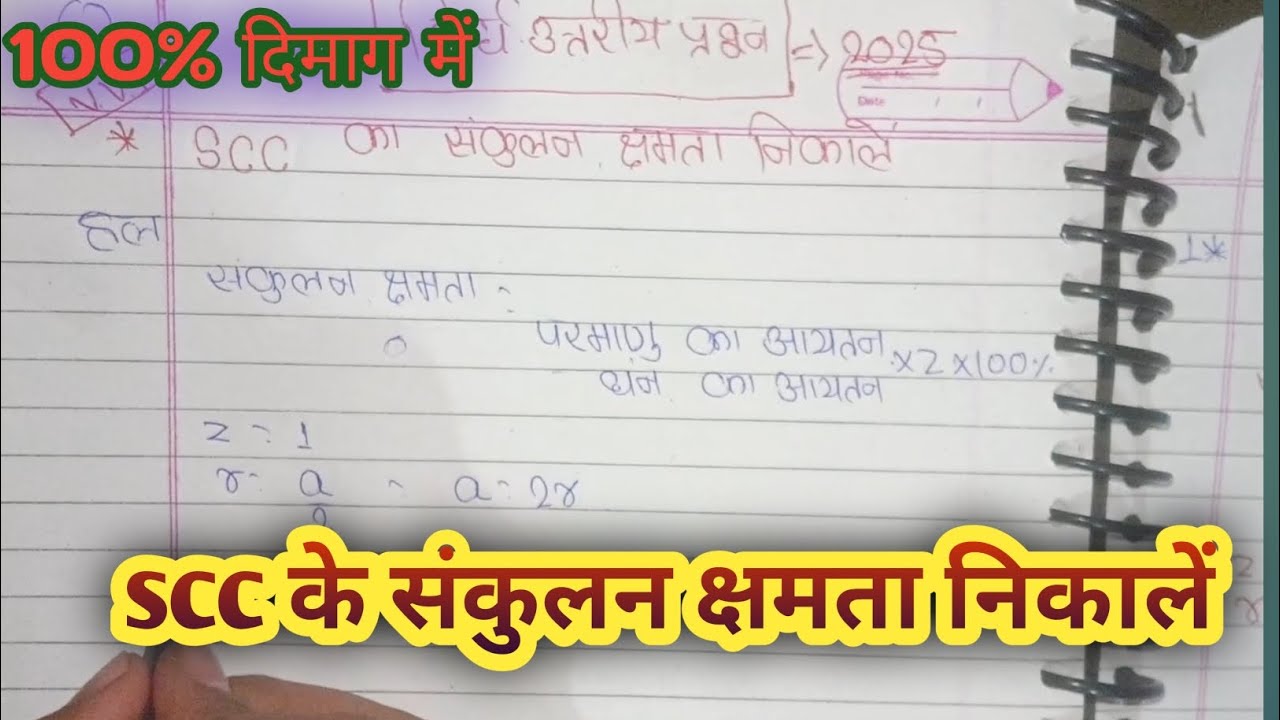 100% दिमाग में
उत्तरीय प्रश्न => 2025
Date
* SCC का संकुलन क्षमता निकालें
हल
संकुलन क्षमता -
परमाणु का आयतन × Z × 100%
घन का आयतन
*1
z = 1
r = a - a = 2r
2
SCC के संकुलन क्षमता निकालें